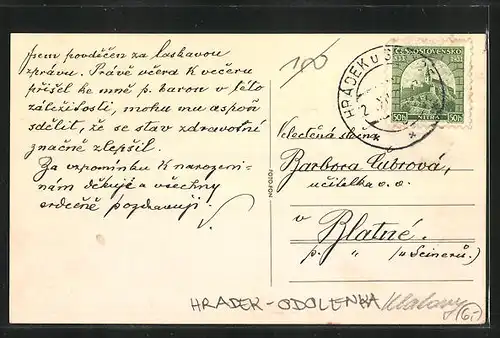 Jsem povděčen za laskavou
zprávu. Právě včera k večeru
přišel ke mně p. baron v této
záležitosti, mohu mu aspoň
sdělit, že se stav zdravotní
značně zlepšil.
Za vzpomínku k narozeni-
nám děkuji a všechny
srdečně pozdravuji.
100
HRÁDEK U
ČESKOSLOVENSKO
50h NITRA 50h
Velectěná slečna
Barbora Cubrová,
učitelka v. v.
v
Blatné.
p. " (u Seinerů.)
FOTO-FON
HRADEK-ODOLENKA Klatovy
6,-